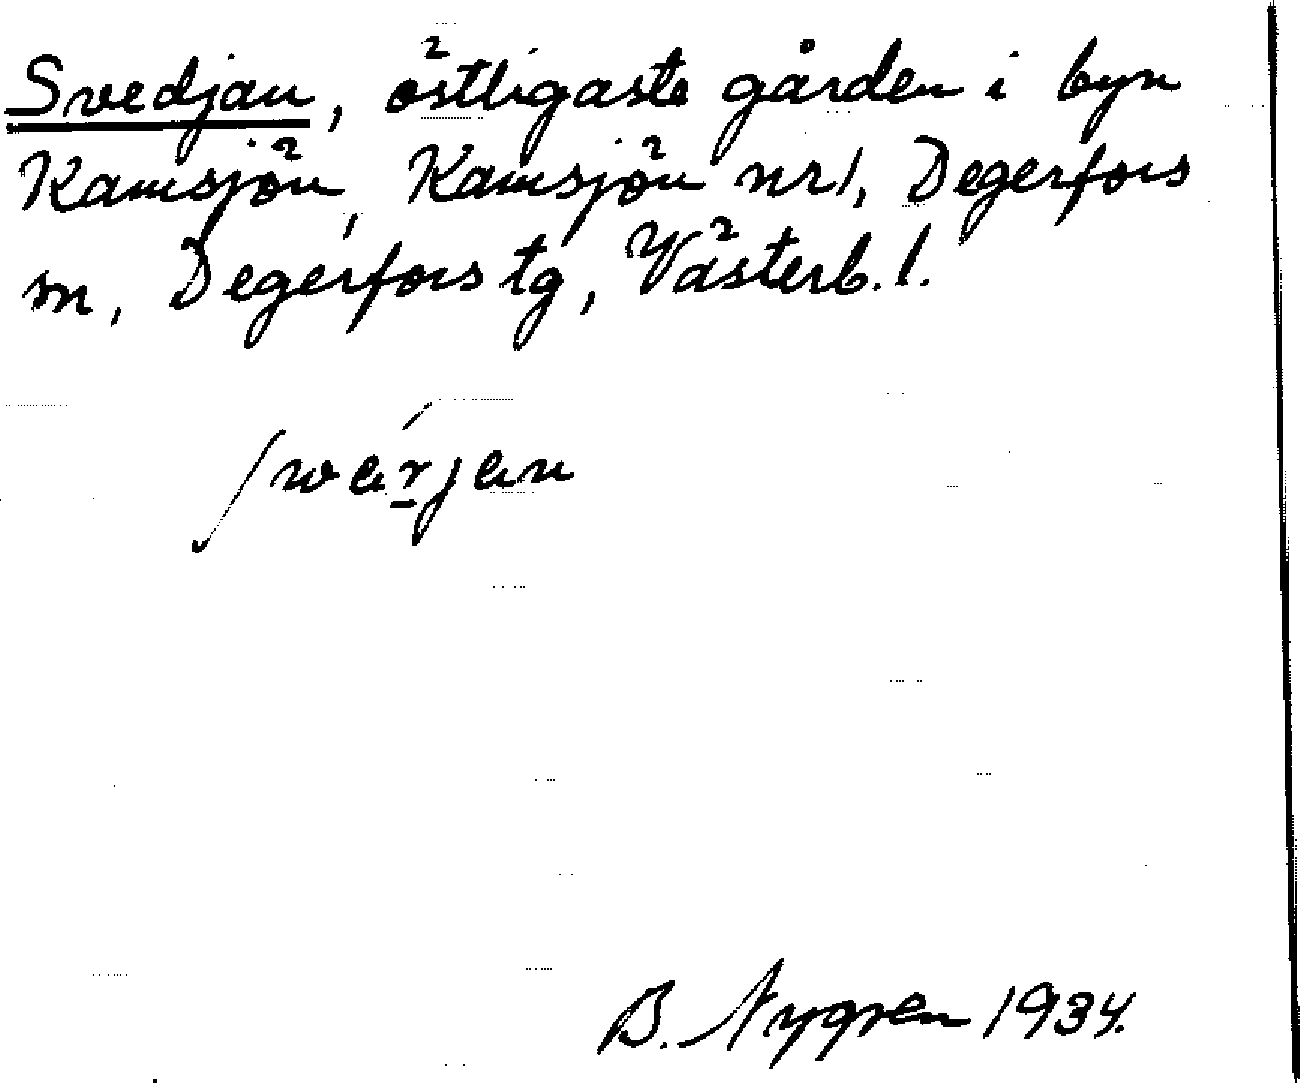 Svedjan, östligaste gården i byn
Kamsjön, Kamsjön nr 1, Degerfors
sn, Degerfors tg, Västerb. l.
B. Nygren 1934.